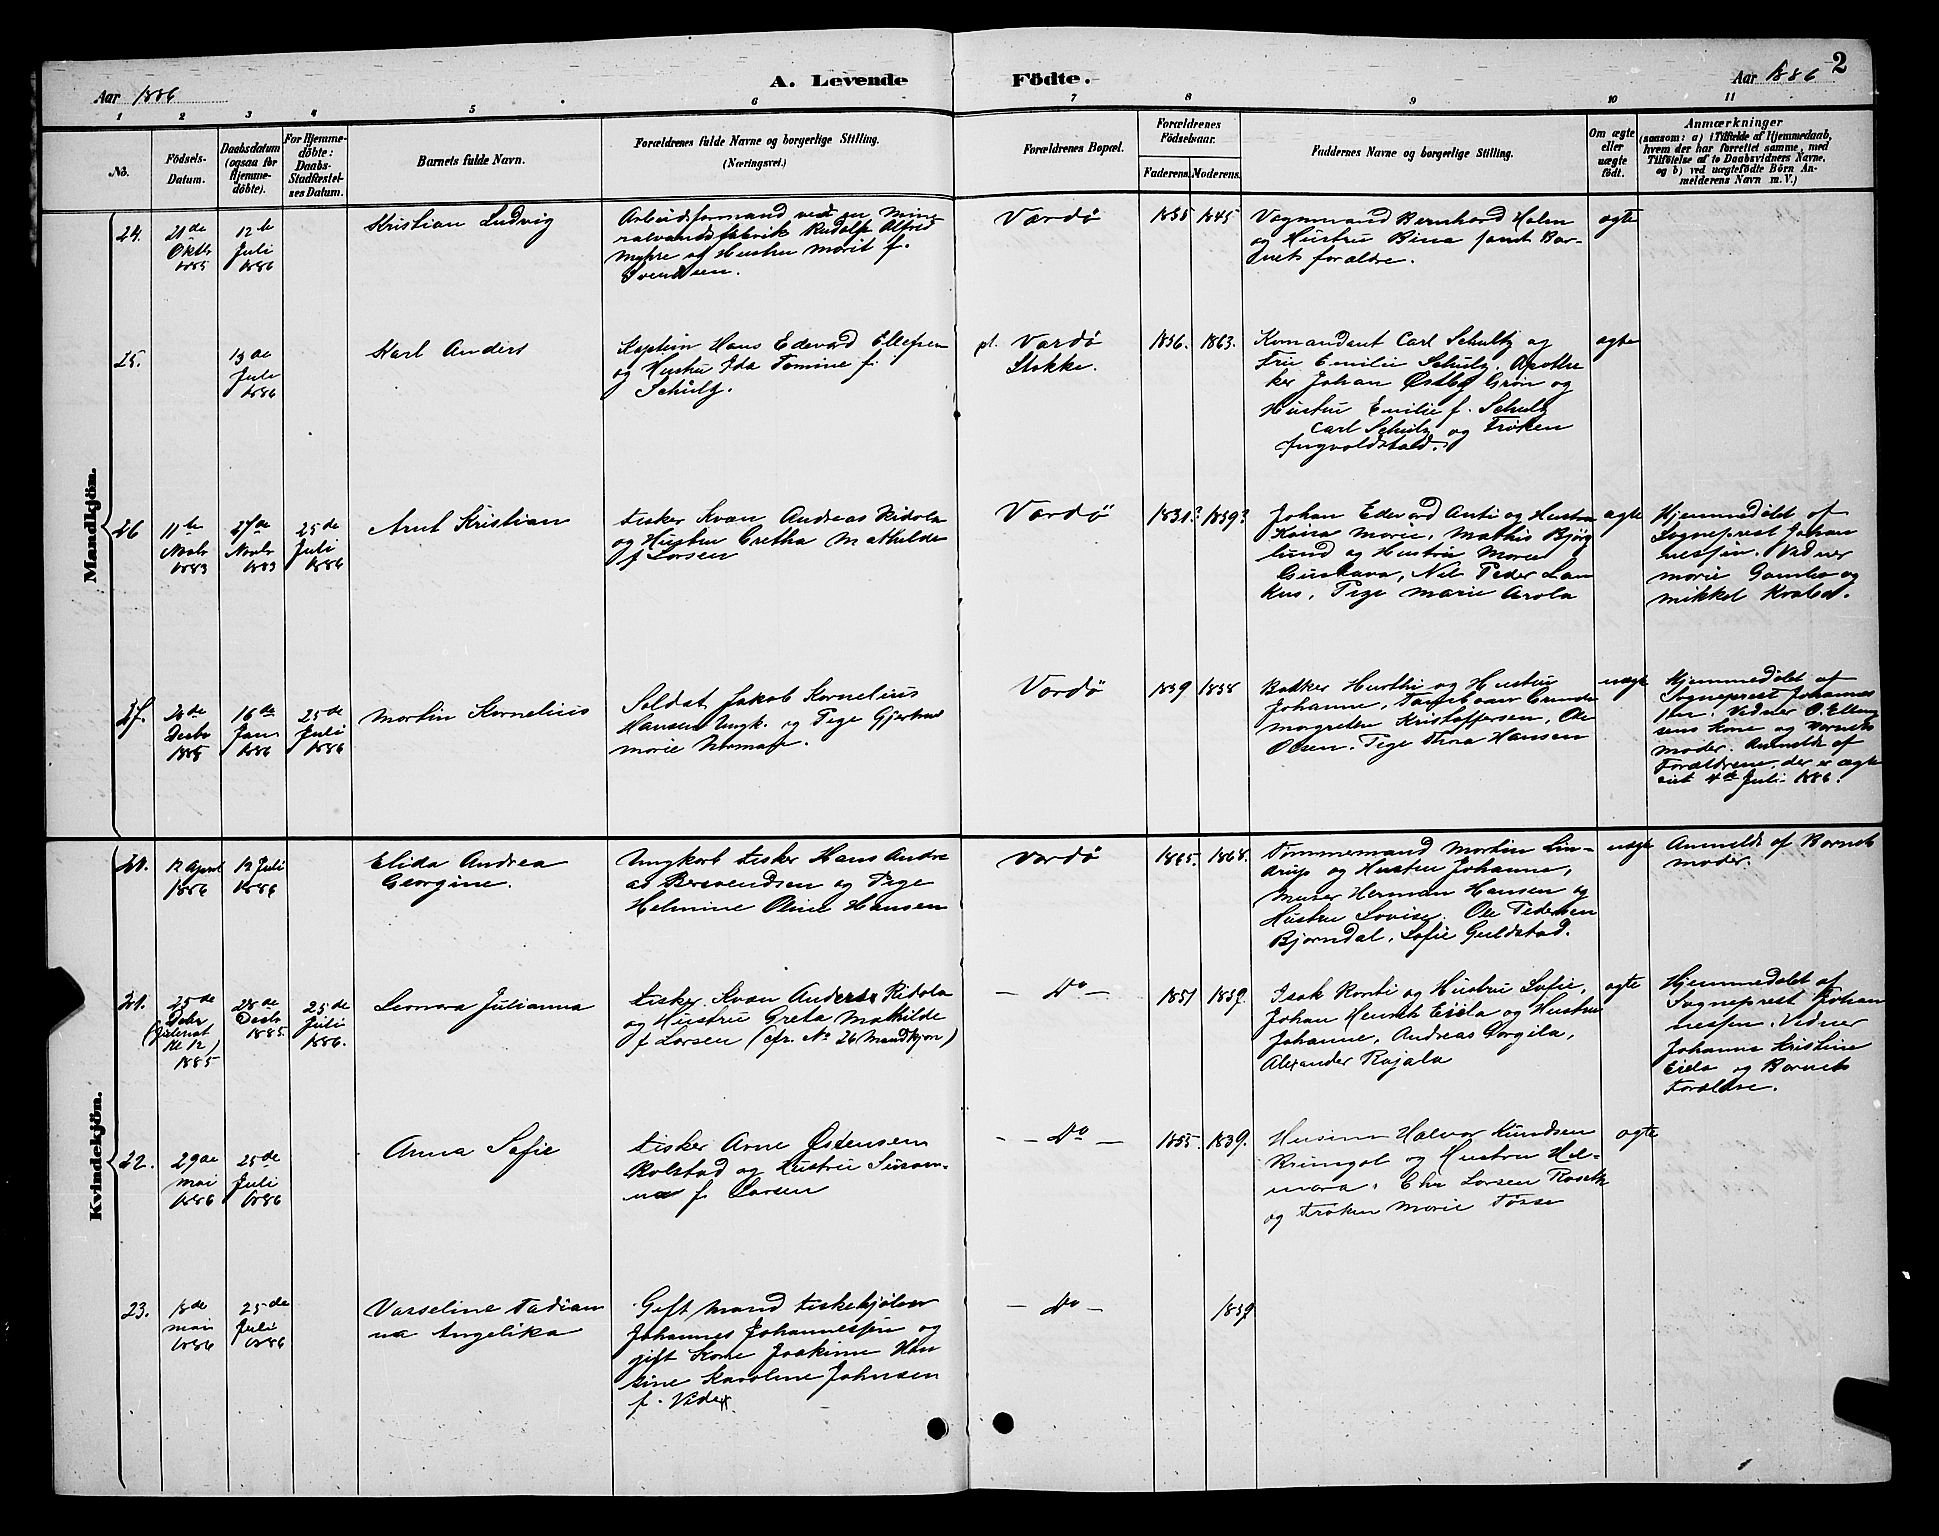 Aar 1886
A. Levende
Födte.
Aar 1886
2
1 2 3 4 5 6 7 8 9 10 11
No.
Födsels-
Datum.
Daabsdatum
(ogsaa for
Hjemme-
döbte).
For Hjemme-
döbte:
Daabs-
Stadfæstel-
ses Datum.
Barnets fulde Navn.
Forældrenes fulde Navne og borgerlige Stilling.
(Næringsvei.)
Forældrenes Bopæl.
Forældrenes
Födselsaar.
Faderens.
Moderens.
Faddernes Navne og borgerlige Stilling.
Om ægte
eller
uægte
födt.
Anmærkninger
(saasom: a) i Tilfælde af Hjemmedaab,
hvem der har forrettet samme, med
Tilföielse af to Daabsvidners Navne,
og b) ved uægtefödte Börn An-
melderens Navn m. V.)
Mandkjön.
24.
21de
Oktbr
1885
12te
Juli
1886
Kristian Ludvig
Arbeidsformand ved en Mine
ralvandsfabrik Rudolf Alfred
Myhre og Hustru Marit f.
Svendsen.
Vardø
1855
1845
Vognmand Bernhard Holm
og Hustru Bina samt Bar-
nets forældre.
ægte
25.
13de
Juli
1886
Karl Anders
Kaptein Hans Edevard Ellefsen
og Hustru Ida Tomine f.
Schultz.
pt. Vardø
Stokke.
1856.
1863.
Komandant Carl Schultz og
Fru Emilie Schultz, Apothe
ker Johan Østby Grøn og
Hustru Emilie f. Schultz
Carl Schultz og Frøken
Ingvoldstad.
ægte
26
11te
Novbr
1883
27de
Novbr
1883
25de
Juli
1886
Arnt Kristian
Fisker Kvæn Andreas Ridola
og Hustru Gretha Mathilde
f Larsen
Vardø
1851?
1859?
Johan Edevard Anti og Hustru
Kaisa Marie, Mathis Bjørg
lund og Hustru Marie
Gustava, Nils Peder Lan
kus, Pige Marie Arola
ægte
Hjemmedøbt af
Sogneprest Johan
nessen. Vidner
Marie Gamlos og
Mikkel Kvabed.
27.
16de
Jan
1886
25de
Juli
1886
Martin Kornelius
Soldat Jakob Kornelius
Hansen Ungk. og Pige Gjertrud
Marie Norman.
Vardø
1859
1858
Johanne,
Kristoffersen, Ole
Olsen. Pige Thora Hansen
uægte
Hjemmedøbt af
Sogneprest Johannes
sen. Vidner O. Elling
sens Kone og Barnets
Moder. Anmeldt af
Forældrene, der er ægte
viet 4de Juli 1886.
Kvindekjön.
20.
12 April
1886
12 Juli
1886
Elida Andrea
Georgine.
Ungkarl Fisker Hans Andre
as Berevendsen og Pige
Helmine Oline Hansen
Vardø
1865.
1868.
Tømmermand Martin Lin-
drup og Hustru Johanne,
Murer Herman Hansen og
Hustru Lovise. Ole Pedersen
Bjørndal, Sofie Guldstad.
uægte
Anmeldt af Barnets
Moder.
21.
25de
Debr
(Julenat
Kl 12)
1885
28de
Desbr
1885.
25de
Juli
1886.
Leonora Julianna
Fisker. Kvæn Anders Ridola
og Hustru Greta Mathilde
f Larsen (cfr. No 26 Mandkjøn)
- Do -
1851
1859
Isak Ronti og Hustru Sofie,
Johan Henrik Eiela og Hustru
Johanne, Andreas Gorgila,
Alexander Rajala
ægte
Hjemmedøbt af
Sogneprest Johan
nessen. Vidner
Johanna Kristine
Eiela og Barnets
Forældre.
22.
29de
Mai
1886
25de
Juli
1886
Anna Sofie
Fisker Arne Østensen
Rolstad og Hustru Susan-
na f. Larsen
- - Do -
1855
1859.
Husmand Halvor Kundsen
og Hustru Hel-
mara. Chr Larsen Roseth
og Frøken Marie Fosse
ægte
23.
18de
Mai
1886
25de
Juli
1886
Vasseline Tadian
na Angelika
Gift Mand Fiskekjøber
Johannes Johannessen og
gift Kone Joakime Han
sine Karoline Johnsen
f. Vider
- Do -
1859